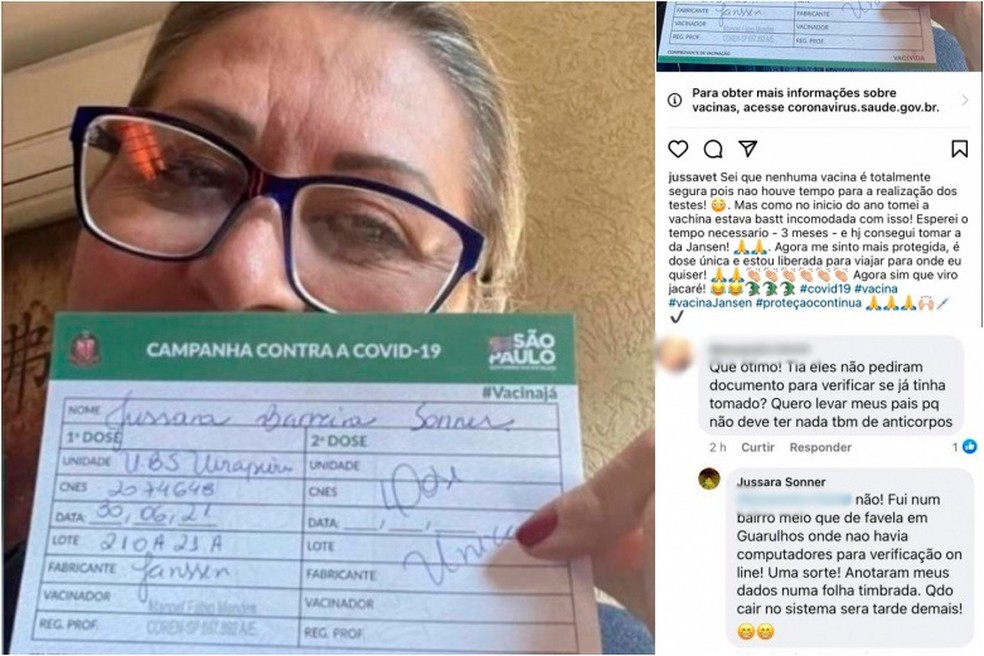 CAMPANHA CONTRA A COVID-19
SÃO
PAULO
GOVERNO DO ESTADO
#Vacinajá
NOME Jussara Barreira Sonner
1ª DOSE
2ª DOSE
UNIDADE UBS Uirapuru
UNIDADE
CNES 2074648
CNES
Dose
DATA: 30/06/21
DATA: / /
LOTE 210A21A
LOTE
Única
FABRICANTE Janssen
FABRICANTE
VACINADOR Manoel Fabio Mendes
VACINADOR
REG. PROF.
REG. PROF.
FABRICANTE Janssen
FABRICANTE
VACINADOR
VACINADOR
REG. PROF.
REG. PROF.
COMPROVANTE DE VACINAÇÃO
VACIVIDA
Para obter mais informações sobre
vacinas, acesse coronavirus.saude.gov.br.
jussavet Sei que nenhuma vacina é totalmente
segura pois nao houve tempo para a realização dos
testes! 😳. Mas como no inicio do ano tomei a
vachina estava bastt incomodada com isso! Esperei o
tempo necessario - 3 meses - e hj consegui tomar a
da Jansen! 🙏🙏. Agora me sinto mais protegida, é
dose única e estou liberada para viajar para onde eu
quiser! 🙏🙏👏👏👏👏👏👏 Agora sim que viro
jacaré! 😂😂🐊🐊🐊 #covid19 #vacina
#vacinaJansen #proteçaocontinua 🙏🙏🙏🙌💉
✔
Que ótimo! Tia eles não pediram
documento para verificar se já tinha
tomado? Quero levar meus pais pq
não deve ter nada tbm de anticorpos
2 h Curtir Responder 1
Jussara Sonner
não! Fui num
bairro meio que de favela em
Guarulhos onde nao havia
computadores para verificação on
line! Uma sorte! Anotaram meus
dados numa folha timbrada. Qdo
cair no sistema sera tarde demais!
😁😁